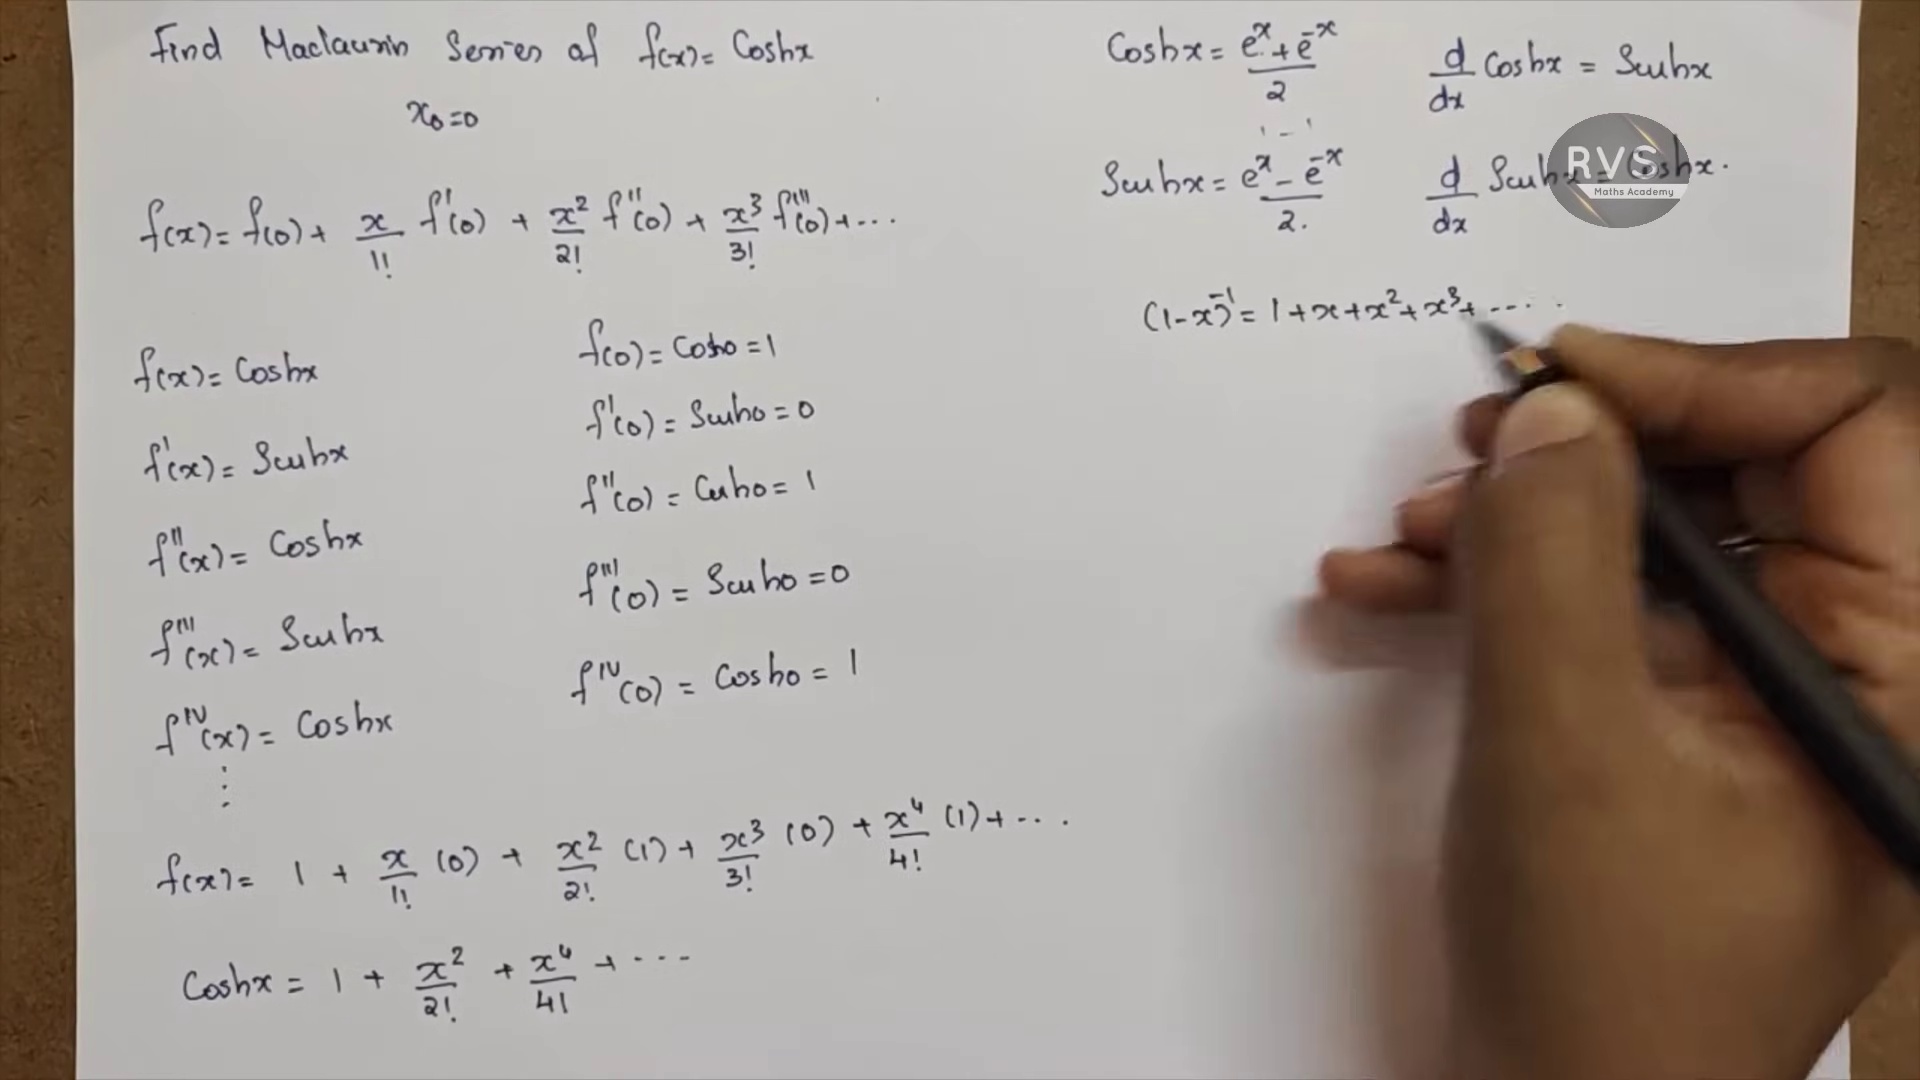 Find Maclaurin Series of f(x) = Coshx
x₀=0
f(x) = f(0) + x/1! f'(0) + x²/2! f''(0) + x³/3! f'''(0) + ...
f(x) = Coshx
f'(x) = Sinhx
f''(x) = Coshx
f'''(x) = Sinhx
f^IV(x) = Coshx
⋮
f(0) = Cosh0 = 1
f'(0) = Sinh0 = 0
f''(0) = Cosh0 = 1
f'''(0) = Sinh0 = 0
f^IV(0) = Cosh0 = 1
f(x) = 1 + x/1! (0) + x²/2! (1) + x³/3! (0) + x⁴/4! (1) + ...
Coshx = 1 + x²/2! + x⁴/4! + ...
Coshx = (e^x + e^-x)/2
d/dx Coshx = Sinhx
Sinhx = (e^x - e^-x)/2.
d/dx Sinhx = Coshx.
RVS
Maths Academy
(1-x)^-1 = 1 + x + x² + x³ + ....